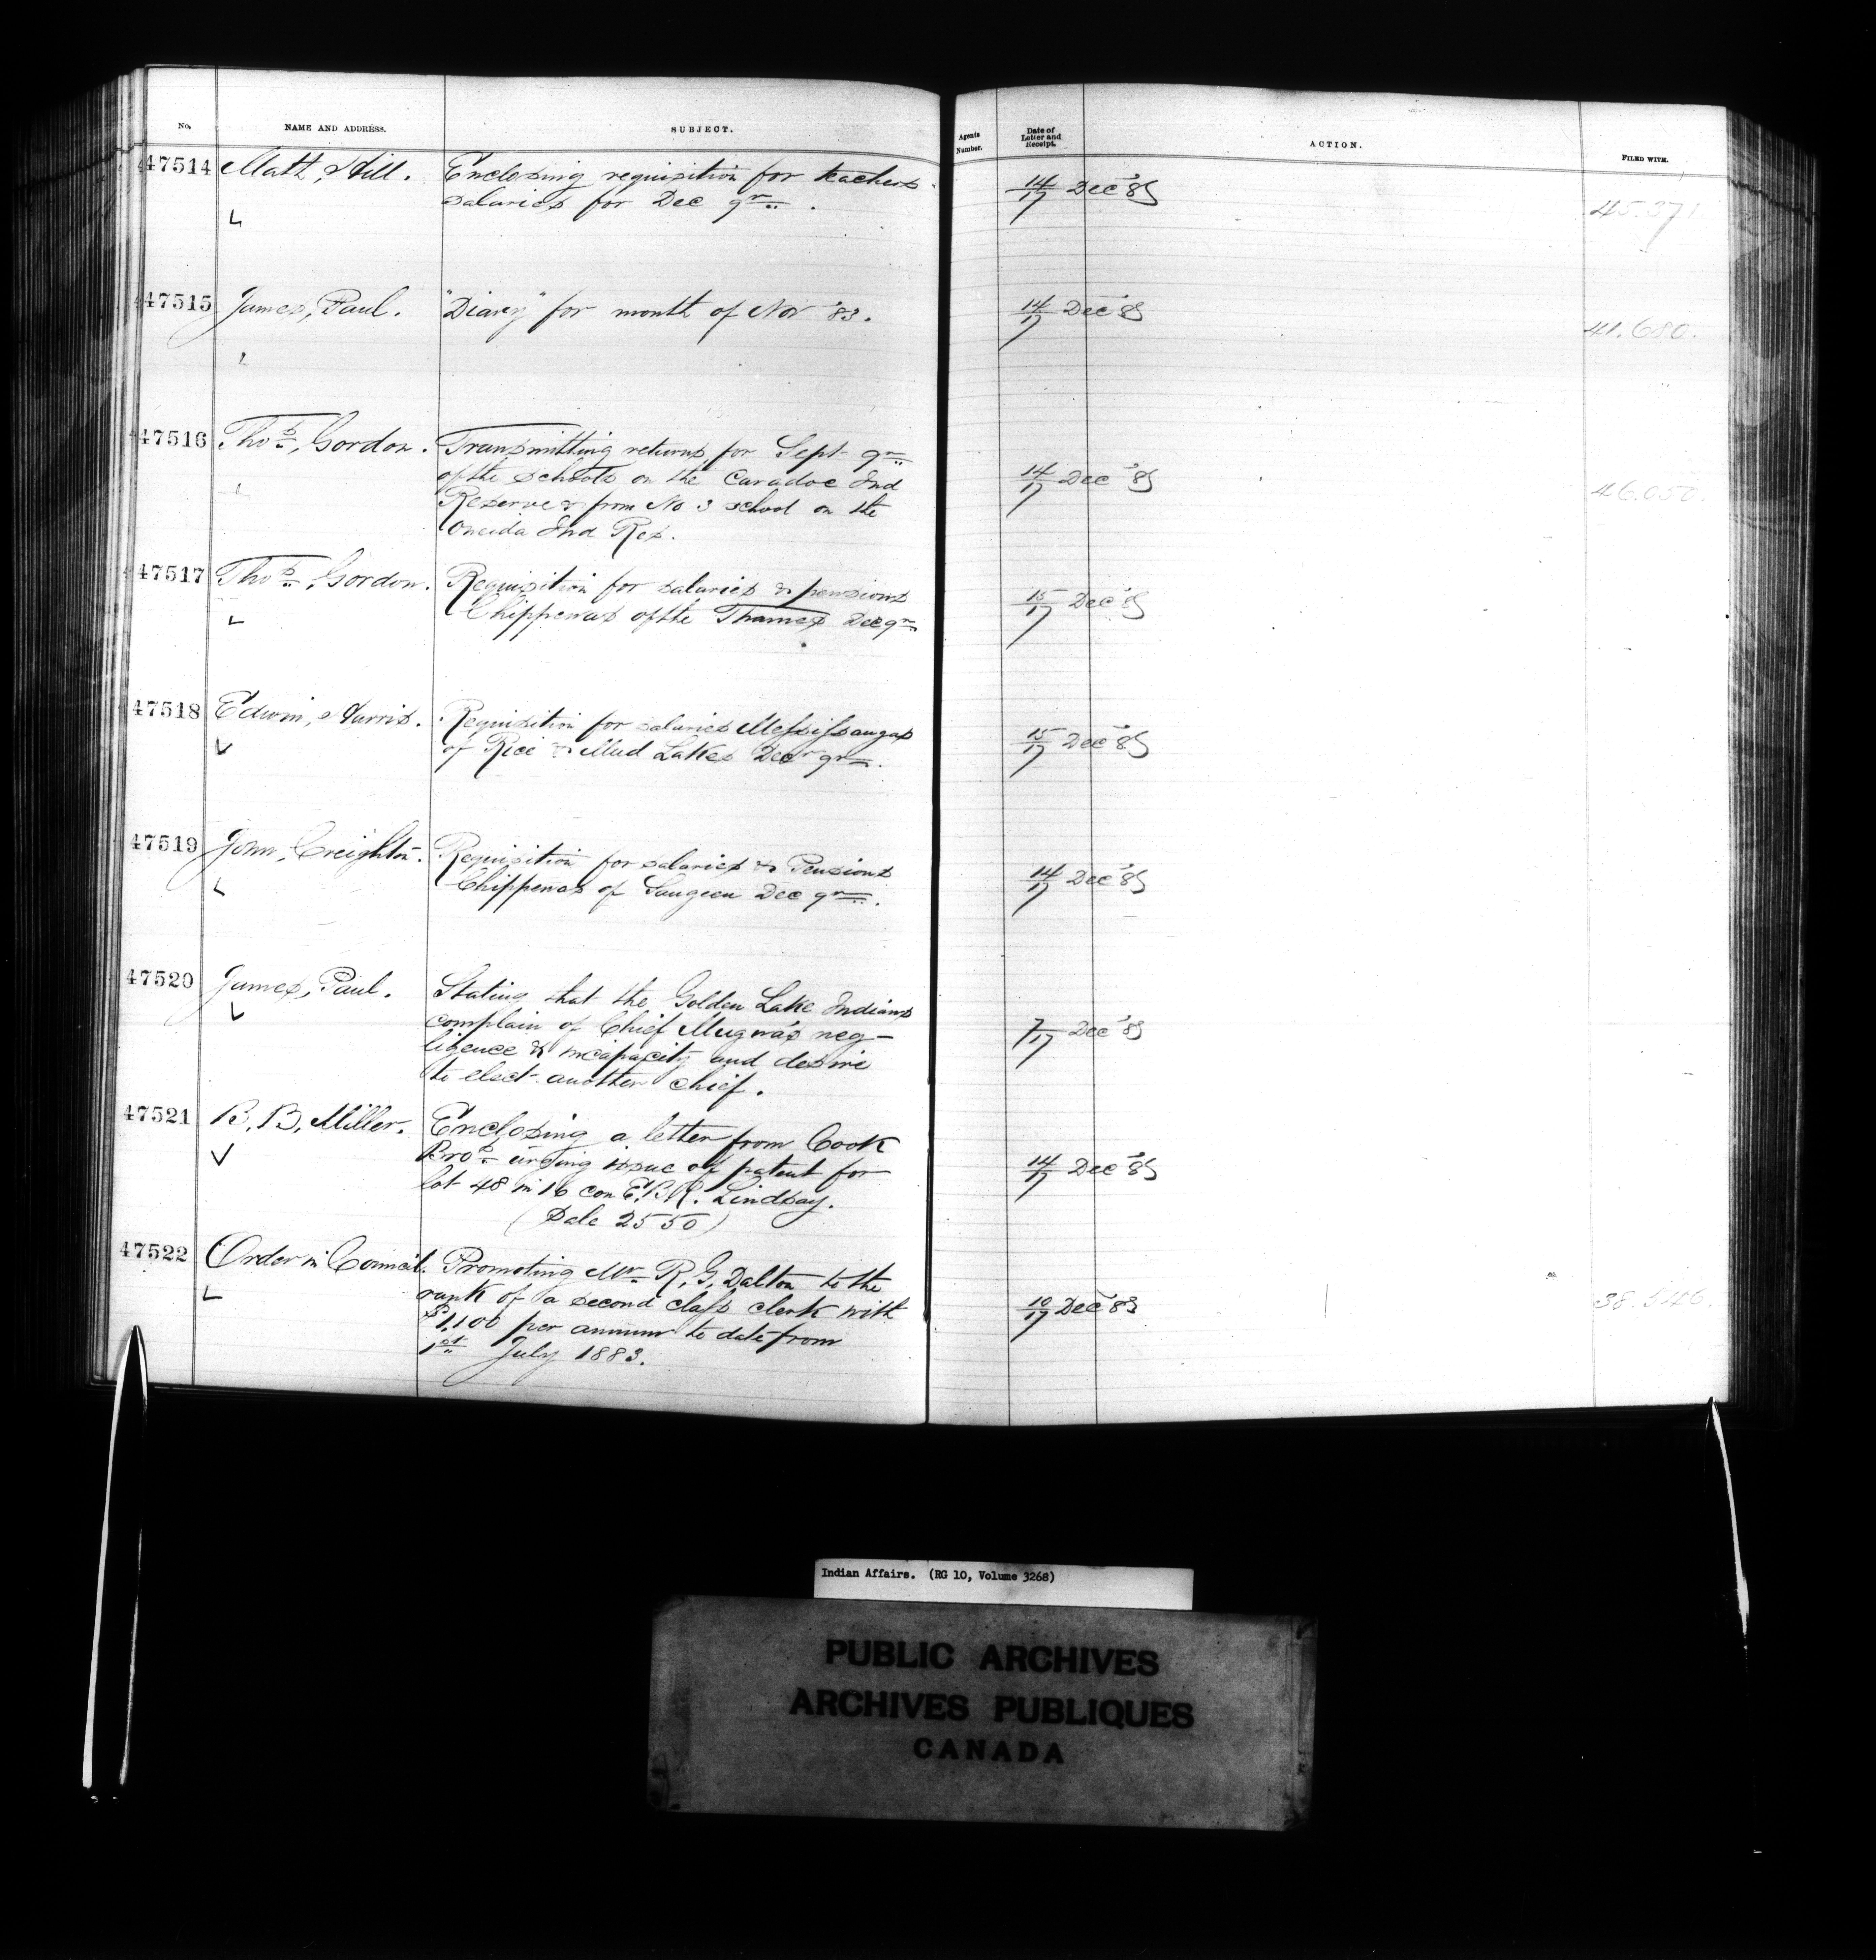 No. NAME AND ADDRESS. SUBJECT. Agents Number. Date of Letter and Receipt. ACTION. FILED WITH.
47514 Matt, Hill. Enclosing requisition for teachers
salaries for Dec qr. 14/17 Dec '83 45.371
47515 James, Paul. "Diary" for month of Nov '83. 14/17 Dec '83 41.680.
47516 Thos, Gordon. Transmitting returns for Sept qr
of the schools on the Caradoc Ind
Reserve & from No 3 school on the
Oneida Ind Res. 14/17 Dec '83 46.050.
47517 Thos, Gordon. Requisition for salaries & pensions
Chippewas of the Thames Dec qr 15/17 Dec '83
47518 Edwin, Harris. Requisition for salaries Messissaugas
of Rice & Mud Lakes Decr qr. 15/17 Dec '83
47519 John, Creighton. Requisition for salaries & Pensions
Chippewas of Saugeen Dec qr. 14/17 Dec '83
47520 James, Paul. Stating that the Golden Lake Indians
complain of Chief Mugwa's neg-
ligence & incapacity and desire
to elect another chief. 7/17 Dec '83
47521 B. B. Miller. Enclosing a letter from Cook
Bros urging issue of patent for
lot 48 in 16 con E.B.R. Lindsay.
(Sale 2550) 14/17 Dec '83
47522 Order in Council. Promoting Mr R. G. Dalton to the
rank of a second class clerk with
$1,100 per annum to date from
1st July 1883. 10/17 Dec '83 38.546.
Indian Affairs. (RG 10, Volume 3268)
PUBLIC ARCHIVES
ARCHIVES PUBLIQUES
CANADA